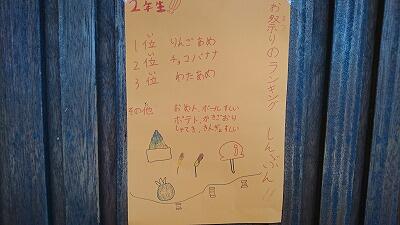 お祭りのランキング しんぶん!!
2年生!!!
1位 りんごあめ
2位 チョコバナナ
3位 わたあめ
その他 おめん、ボールすくい
ポテト、かきごおり
しゃてき、きんぎょすくい